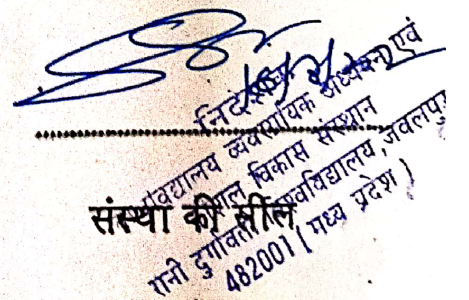 निदेशक
विश्वविद्यालय व्यवसायिक अध्ययन एवं
कौशल विकास संस्थान
रानी दुर्गावती विश्वविद्यालय, जबलपुर
482001 ( मध्य प्रदेश )
संस्था की सील